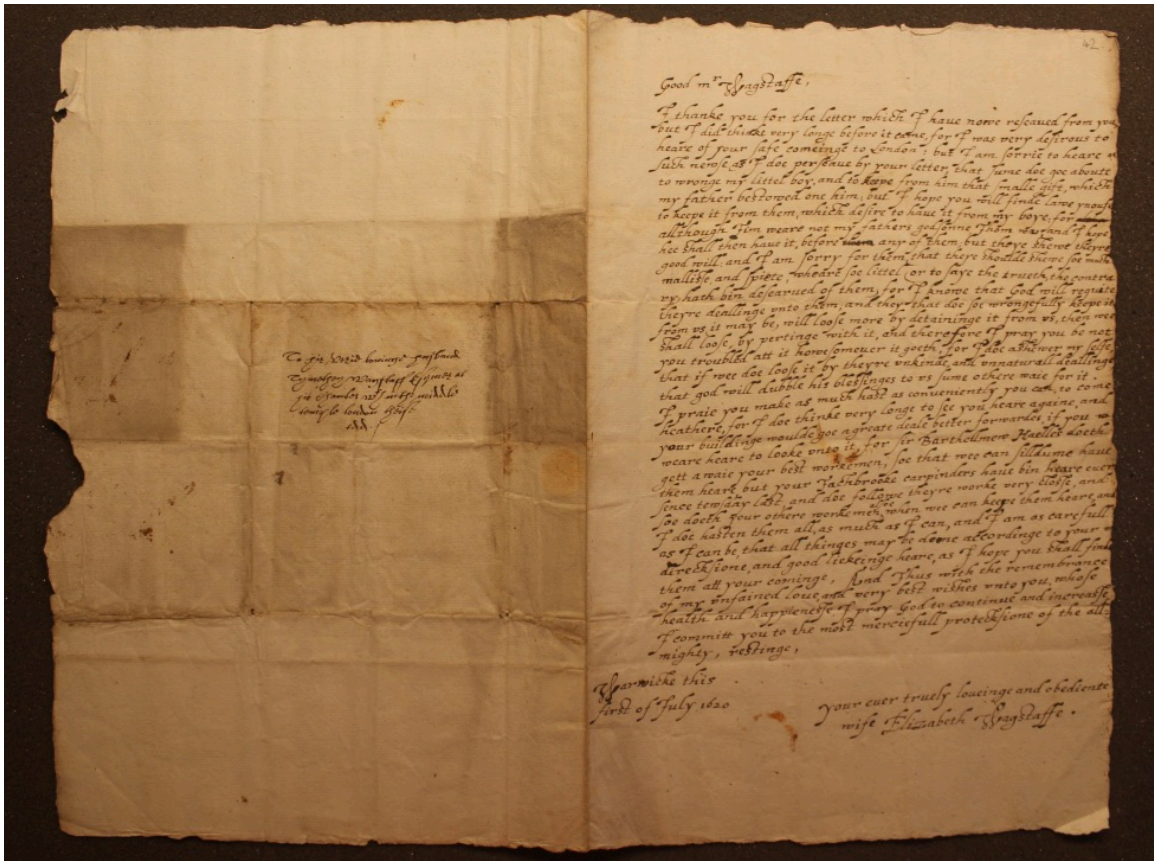 To his Verie lovinge husband
Tymothey Wagstaff Esquier at
his Chamber in
middle
temple london
dd.
42
Good mr Wagstaffe,
I thanke you for the letter which I have nowe reseaved from you
but I did thinke very longe before it came, for I was very desirous to
heare of your safe comeinge to London: but I am sorrie to heare
such newse as I doe perseave by your letter, that sume doe goe aboute
to wronge my littel boy, and to keepe from him that smalle gift, which
my father bestowed one him, but I hope you will finde lawe ynoufe
to keepe it from them, which desire to have it from my boye, for
allthough Tim weare not my fathers godsonne Thom was and I hope
hee shall then have it, before any of them: but theye shewe theyre
good will, and I am sorry for them, that there shoulde shewe soe much
mallisse, and spiete, wheare soe littel (or to saye the trueth, the contra
ry) hath bin desearved of them, for I knowe that God will requite
theyre deallinge unto them, and they that doe soe wrongefully keepe it
from us it may be, will loose more by detaininge it from us, then wee
shall loose, by pertinge with it, and therefore I pray you be not
you troubled att it howesomever it goeth, for I doe ashewer my selfe
that if wee doe loose it by theyre unkinde, and unnaturall deallinge
that god will dubble his blessings to us sume others waie for it.
I praie you make as much hast as conveniently you can, to come
heathere, for I doe thinke very longe to see you heare againe, and
your buildinge woulde goe a greate deale better forwardes, if you
weare heare to looke unto it, for sir Barthollmew Haelles doeth
gett awaie your best workemen, soe that wee can silldume have
them heare but your Tachbrooke carpinders have bin heare ever
sence tewsday last, and doe followe theyre worke very closse, and
soe doeth your others workemen alsoe when wee can keepe them heare, and
I doe hasten them all, as much as I can, and I am as carefull
as I can be, that all thinges may be doone accordinge to your
direcksione, and good liekeinge heare, as I hope you shall finde
them att your cominge, And Thus with the remembrance
of my unfained love, and very best wishes unto you, whose
health and happienesse I pray God to continue and increasse,
I committ you to the most merciefull protecksione of the all=
mighty, restinge,
Warwicke this
first of July 1620
your ever truely loveinge and obediente
wife Elizabeth Wagstaffe.